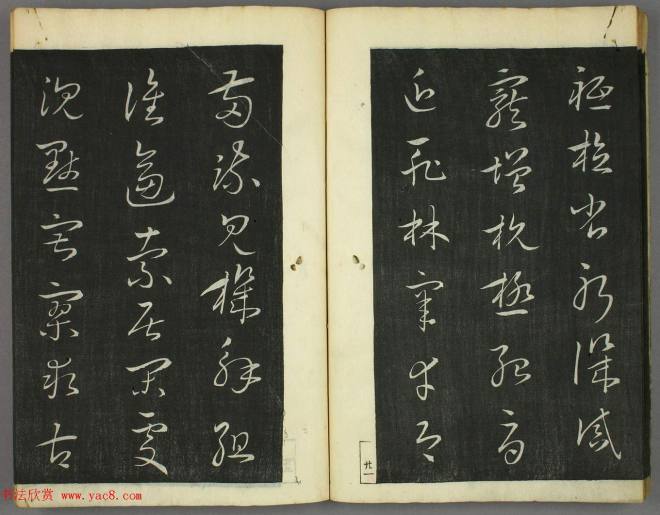 祗植省躬譏誡
寵增抗極殆辱
近恥林皋幸即
兩疏見機解組
誰逼索居閑處
沉默寂寥求古
廿一
书法欣赏 www.yac8.com